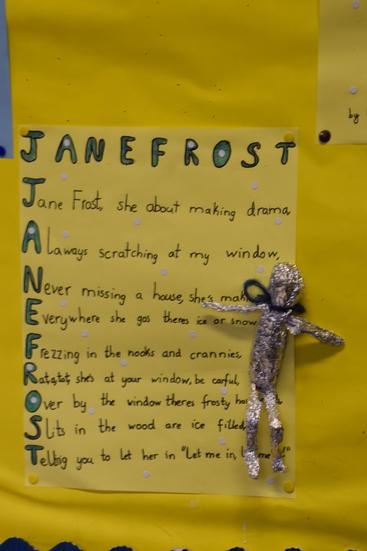 JANEFROST
Jane Frost, she about making drama,
Laways scratching at my window,
Never missing a house, she's
Everywhere she gos theres ice or snow
Frezzing in the nooks and crannies,
Ratatat, she's at your window, be carful,
Over by the window theres frosty
Slits in the wood are ice filled,
Tellsg you to let her in "Let me in,
by